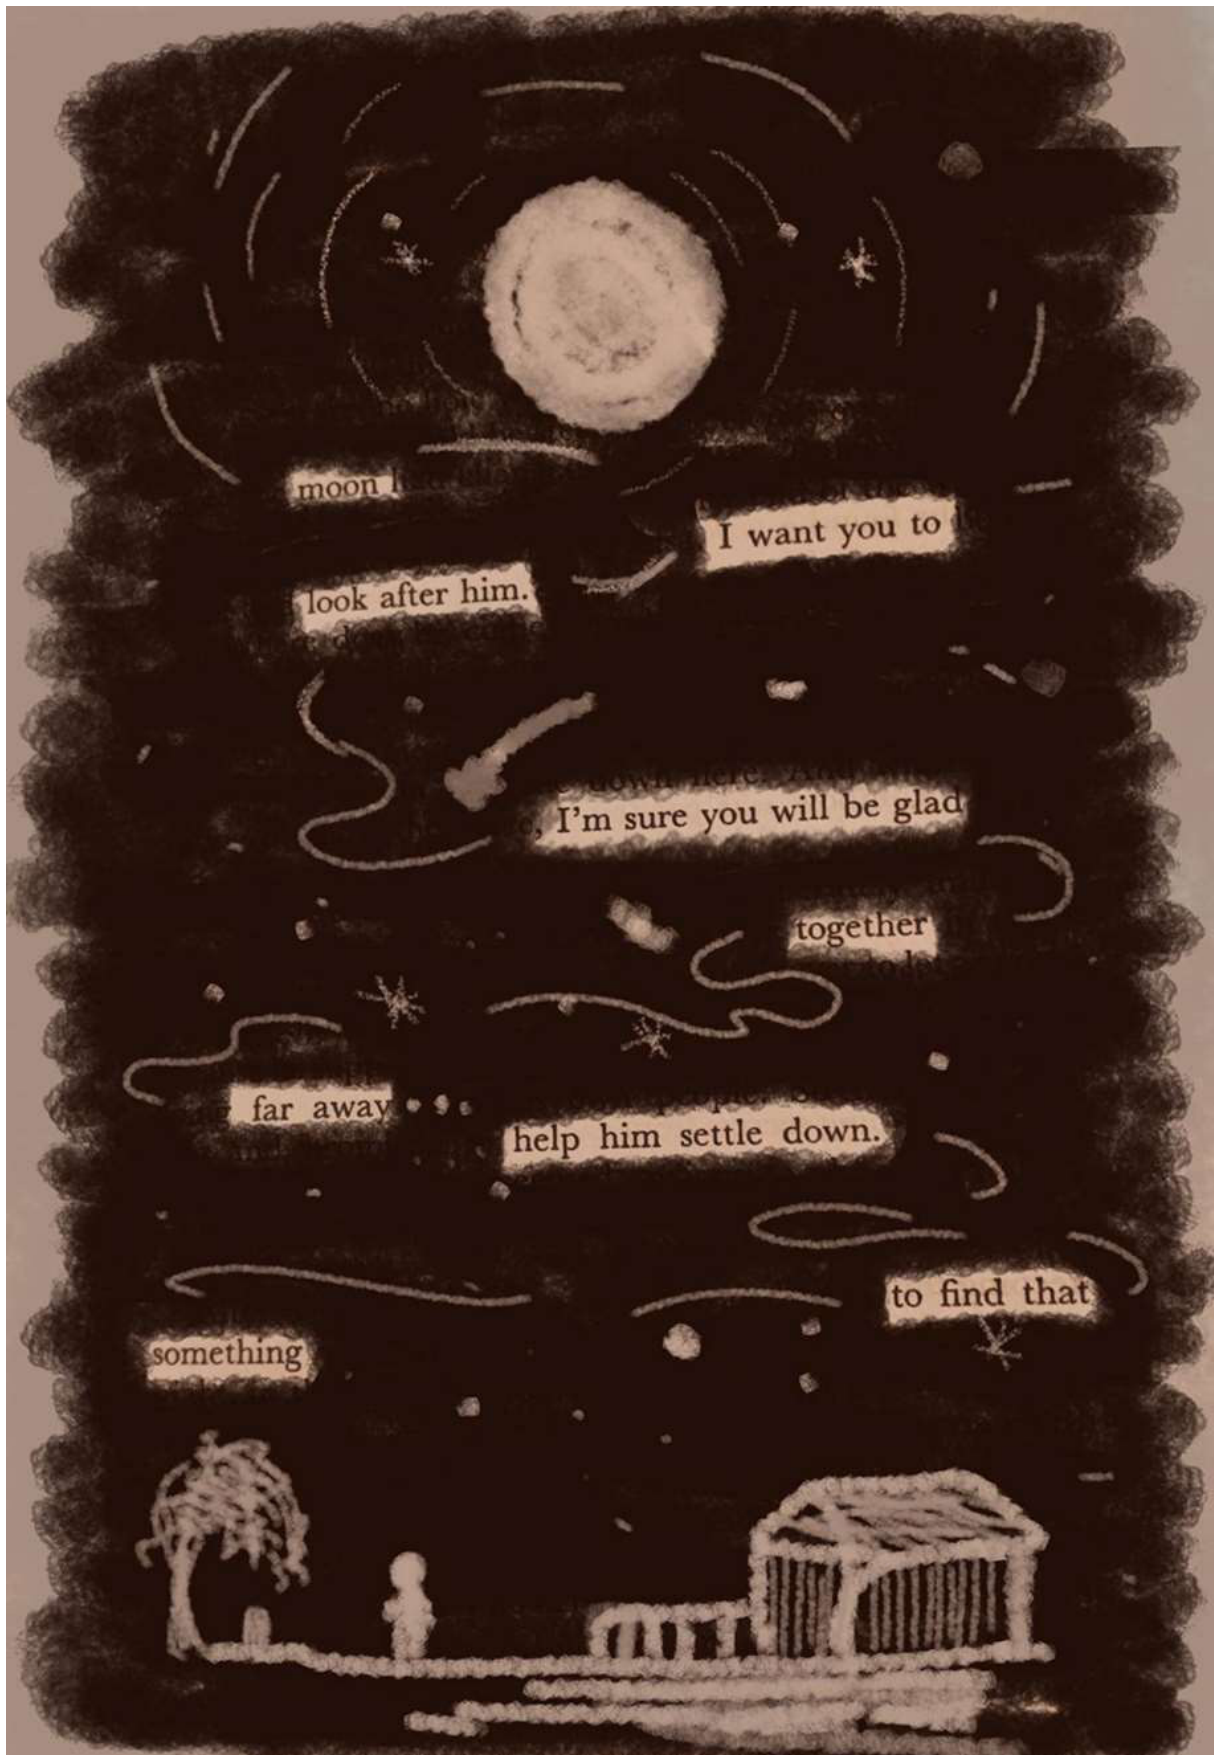 moon
I want you to
look after him.
, I'm sure you will be glad
together
far away
help him settle down.
to find that
something